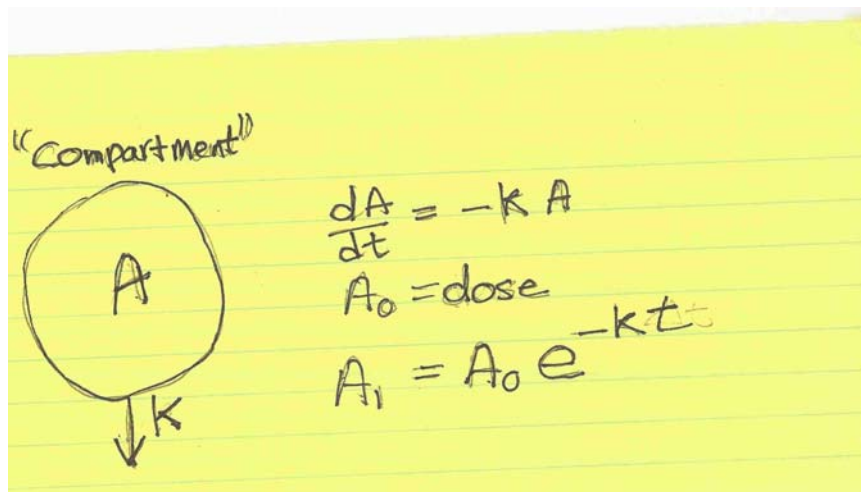 "Compartment"
A
K
dA/dt = -K A
A₀ = dose
A₁ = A₀ e^-kt